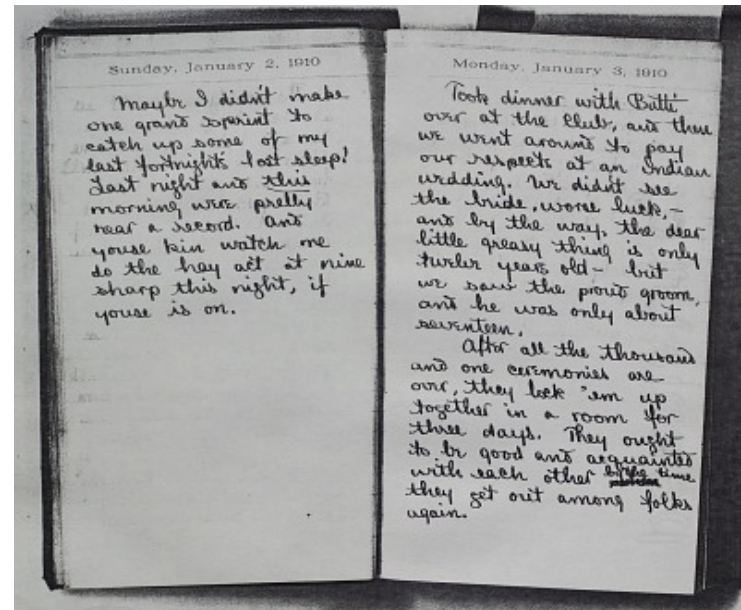 Sunday, January 2, 1910
Maybe I didn't make
one grand sperint to
catch up some of my
last fortnights lost sleep!
Last night and this
morning were pretty
near a record. And
youse kin watch me
do the hay act at nine
sharp this night, if
youse is on.
Monday, January 3, 1910
Took dinner with Butti
over at the Club, and then
we went around to pay
our respects at an Indian
wedding. We didn't see
the bride, worse luck,-
and by the way, the dear
little greasy thing is only
twelve years old- but
we saw the proud groom,
and he was only about
seventeen.
After all the thousand
and one ceremonies are
over, they lock 'em up
together in a room for
three days. They ought
to be good and acquainted
with each other by the time
they get out among folks
again.